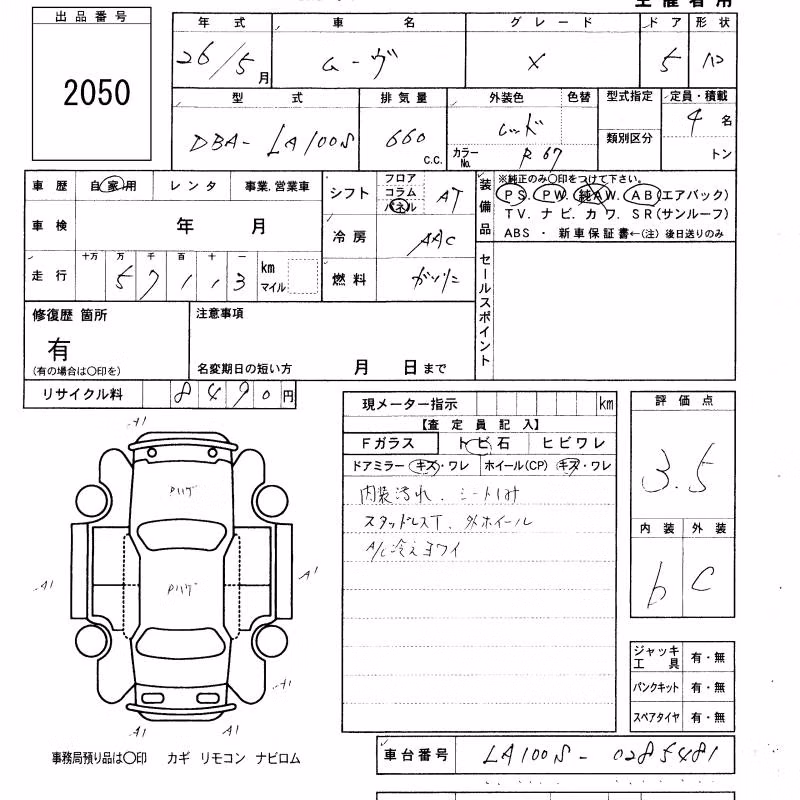 出品番号
2050
年 式 車 名 グレード ドア 形状
26/5月 ムーヴ X 5 ハコ
型 式 排気量 外装色 色替 型式指定 定員・積載
DBA- LA100S 660 c.c. レッド カラーNo. R67 類別区分 4名 トン
車歴 自家用 レンタ 事業、営業車
車検 年 月
走行 十万 万 千 百 十 一 km マイル
57113
シフト フロア コラム パネル AT
冷房 AAC
燃料 ガソリン
装備品 ※純正のみ○印をつけて下さい。
PS. PW. 純AW. AB(エアバック)
TV. ナビ. カワ. SR(サンルーフ)
ABS ・ 新車保証書←(注)後日送りのみ
セールスポイント
修復歴 箇所
有
(有の場合は○印を)
注意事項
名変期日の短い方 月 日まで
リサイクル料 8490円
現メーター指示 km
【査 定 員 記 入】
Fガラス トビ石 ヒビワレ
ドアミラー キズ・ワレ ホイール(CP) キズ・ワレ
内装汚れ、シートしみ
スタッドレスT、外ホイール
A/C冷えヨワイ
評価点
3.5
内装 外装
b C
ジャッキ 工具 有・無
パンクキット 有・無
スペアタイヤ 有・無
A1
Pハゲ
Pハゲ
A1
A1
A1
A1
A1
事務局預り品は○印 カギ リモコン ナビロム
車台番号 LA100S-0285481